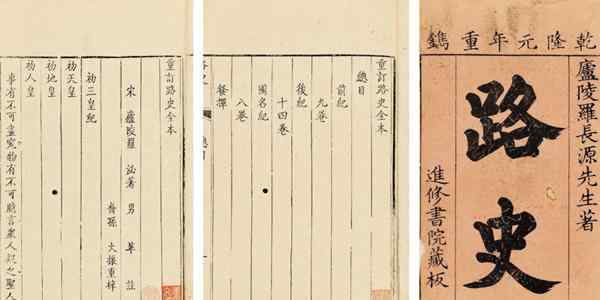 乾隆元年重鐫
廬陵羅長源先生著
路史
進修書院藏板
重訂路史全本
總目
前紀
九卷
後紀
十四卷
國名紀
八卷
發揮
重訂路史全本
宋 廬陵羅 泌著 男 苹 註
裔孫 大振重梓
初三皇紀
初天皇
初地皇
初人皇
事有不可盡究物有不可臆言衆人疑之聖人